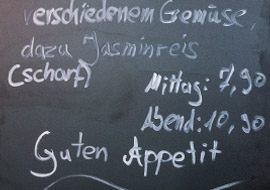 verschiedenem Gemüse,
dazu Jasminreis
(scharf)
Mittag: 7,90
Abend: 10,90
Guten Appetit